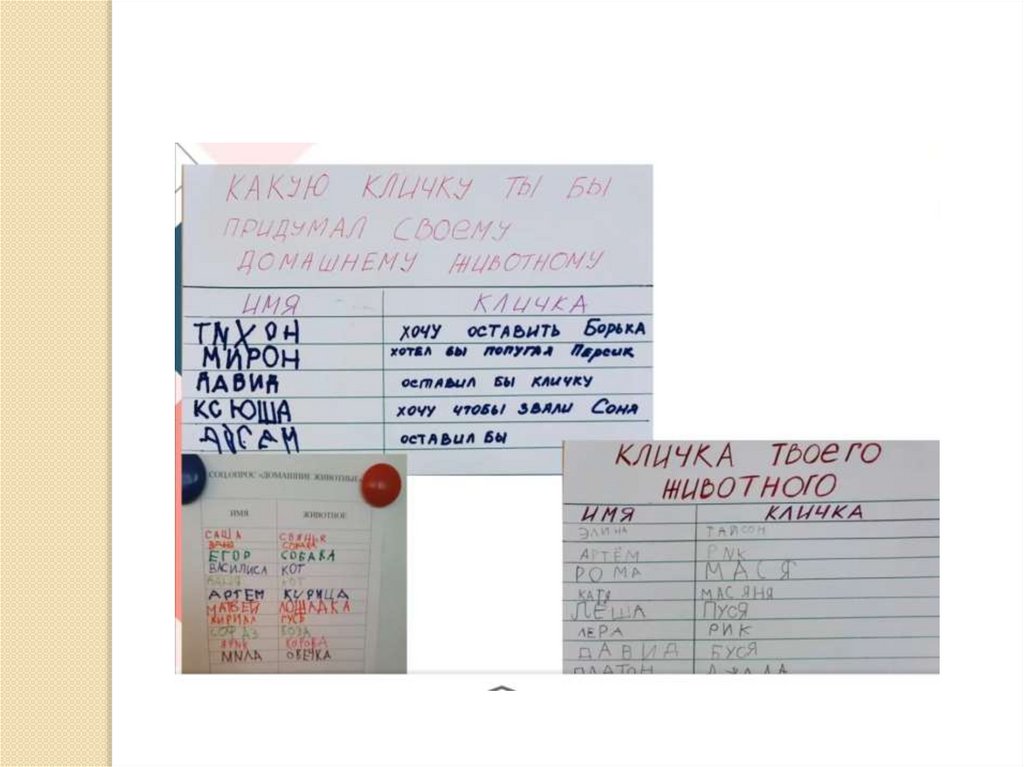 КАКУЮ КЛИЧКУ ТЫ БЫ
ПРИДУМАЛ СВОЕМУ
ДОМАШНЕМУ ЖИВОТНОМУ
ИМЯ КЛИЧКА
ТИХОН ХОЧУ ОСТАВИТЬ БОРЬКА
МИРОН ХОТЕЛ БЫ ПОПУГАЯ Персик
ДАВИД ОСТАВИЛ БЫ КЛИЧКУ
КСЮША ХОЧУ ЧТОБЫ ЗВАЛИ СОНА
ОСТАВИЛ БЫ
СОЦ.ОПРОС «ДОМАШНИЕ ЖИВОТНЫЕ»
ИМЯ ЖИВОТНОЕ
САША
ЕГОР СОБАКА
ВАСИЛИСА КОТ
КОТ
АРТЕМ КУРИЦА
МАТВЕЙ ЛОШАДКА
КИРИЛЛ ГУСЬ
КОЗА
КОРОВА
МИЛА ОВЕЧКА
КЛИЧКА ТВОЕГО
ЖИВОТНОГО
ИМЯ КЛИЧКА
ЭЛИНА ТАЙСОН
АРТЁМ РИК
РОМА МАСЯ
КАТЯ МАСЯНЯ
ЛЁША ПУСЯ
ЛЕРА РИК
ДАВИД БУСЯ
ПЛАТОН